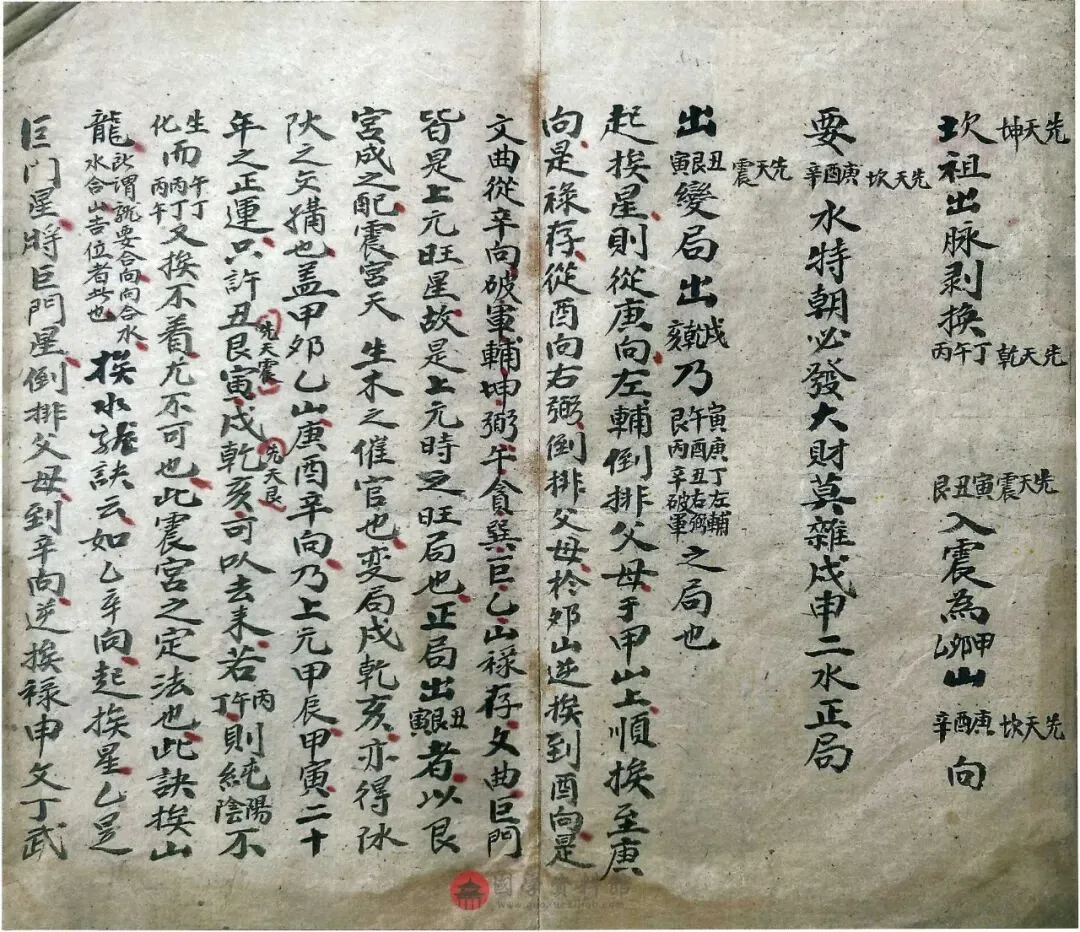 坎先天坤祖出脉剥换丙午丁先天乾 艮丑寅先天震入震為甲卯乙山辛酉庚先天坎向
要辛酉庚先天坎水特朝必發大財莫雜戌申二水正局
出丑艮寅先天震變局出戌乾亥乃寅午艮庚酉丙丁丑辛左輔右弼破軍之局也
起挨星則從庚向左輔倒排父母于甲山上順挨至庚
向是祿存從酉向右弼倒排父母於卯山逆挨到酉向是
文曲從辛向破軍輔坤弼午貪巽巨乙山祿存文曲巨門
皆是上元旺星故是上元時之旺局也正局出丑艮寅者以艮
宮成之配震宮天 生木之催官也变局戌乾亥亦得
之交媾也盖甲卯乙山庚酉辛向乃上元甲辰甲寅二十
年之正運只許丑艮寅先天震戌乾亥先天艮可以去来若丙午丁則純陽陰不
生化午丁而丙丁丙午又挨不着尤不可也此震宮之定法也此訣挨山
龍此謂龍要合向向合水水合山吉位者此也挨水訣云如乙辛向起挨星乙是
巨门星将巨門星倒排父母到辛向逆挨禄申文丁武
國學資料館